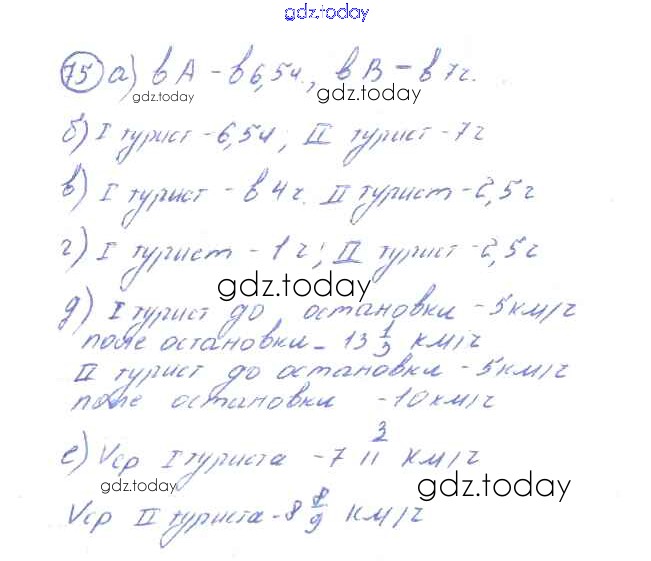 gdz.today
75 а) в А – в 6,5ч., в В – в 7ч.
gdz.today gdz.today
б) I турист – 6,5ч; II турист – 7ч
в) I турист – в 4ч. II турист – 2,5ч
г) I турист – 1ч; II турист – 2,5ч
gdz.today
д) I турист до остановки – 5км/ч
поле остановки – 13 1/3 км/ч
II турист до остановки – 5км/ч
поле остановки – 10км/ч
е) Vср I туриста – 7 3/11 км/ч
gdz.today gdz.today
Vср II туриста – 8 8/9 км/ч